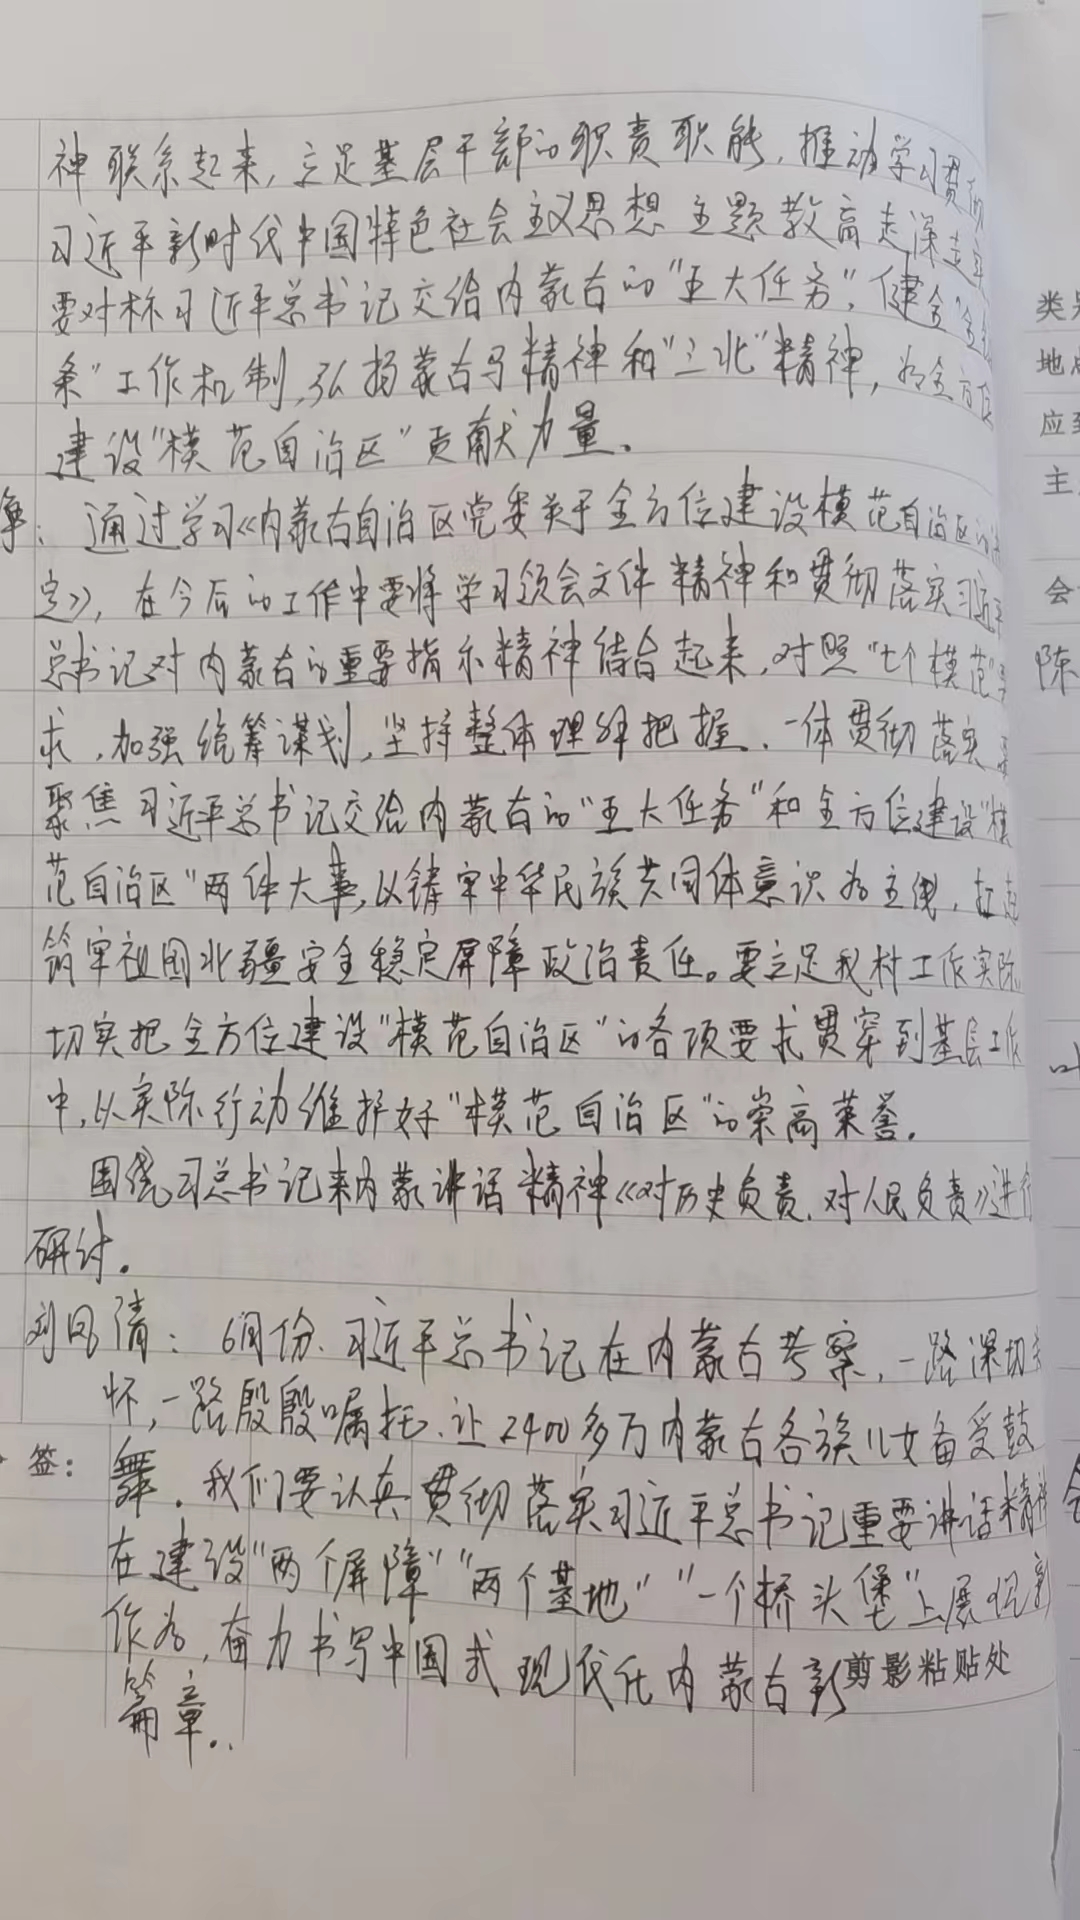 神联系起来，立足基层干部的职责职能，推动学习贯彻
习近平新时代中国特色社会主义思想主题教育走深走
要对标习近平总书记交给内蒙古的"五大任务"，健全"全
条"工作机制，弘扬蒙古马精神和"三北"精神，为全方位
建设"模范自治区"贡献力量。
：通过学习《内蒙古自治区党委关于全方位建设模范自治区的
定》，在今后的工作中要将学习领会文件精神和贯彻落实习近平
总书记对内蒙古的重要指示精神结合起来，对照"七个模范"要
求，加强统筹谋划，坚持整体理解把握、一体贯彻落实
聚焦习近平总书记交给内蒙古的"五大任务"和全方位建设"模
范自治区"两件大事，以铸牢中华民族共同体意识为主线，扛起
筑牢祖国北疆安全稳定屏障政治责任。要立足我村工作实际
切实把全方位建设"模范自治区"的各项要求贯穿到基层工作
中，以实际行动维护好"模范自治区"的崇高荣誉。
围绕习总书记来内蒙讲话精神《对历史负责，对人民负责》进行
研讨。
刘凤清：6月份，习近平总书记在内蒙古考察，一路深切关
怀，一路殷殷嘱托，让2400多万内蒙古各族儿女备受鼓
签：舞。我们要认真贯彻落实习近平总书记重要讲话精神
在建设"两个屏障""两个基地""一个桥头堡"上展现新
作为，奋力书写中国式现代化内蒙古新
剪影粘贴处
篇章。
地
应到
主
会
陈